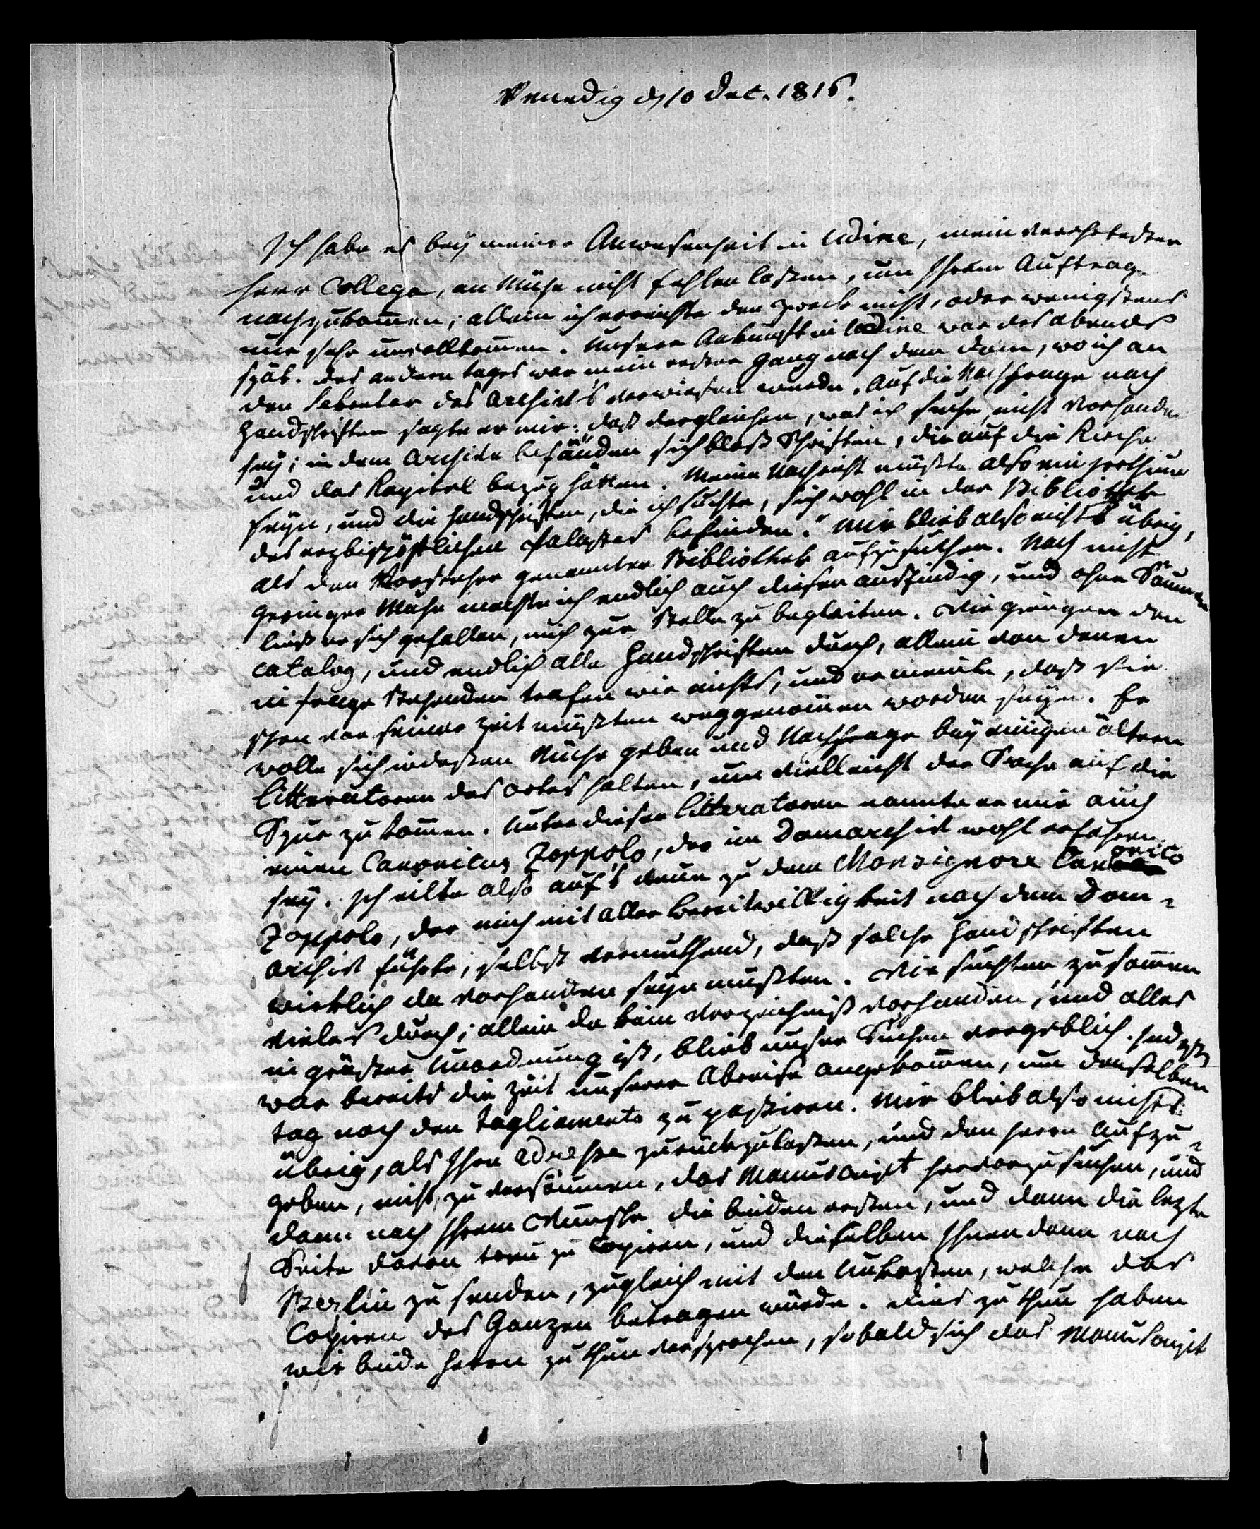 Venedig d 10 Dec. 1816.
Ich habe es bey meiner Anwesenheit in Udine, mein verehrtester
Herr College, an Mühe nicht fehlen lassen, um Ihrem Auftrage
nachzukommen; allein ich erreichte den Zweck nicht, oder wenigstens
nur sehr unvollkommen. Unsere Ankunft in Udine war des Abends
spät. Des andern Tages war mein erster Gang nach dem Dom, wo ich an
den Sekretar des Archiv's verwiesen wurde. Auf die Nachfrage nach
Handschriften sagte er mir: daß dergleichen, was ich suche nicht vorhanden
sey; in dem Archive befänden sich bloß Schriften, die auf die Kirche
und das Kapitel bezug hätten. Meine Nachricht müßte also ein Irrthum
seyn, und die Handschriften, die ich suchte, sich wohl in der Bibliothek
des erzbischöflichen Palastes befinden." Mir blieb also nichts übrig,
als den Vorsteher genannter Bibliothek aufzusuchen. Nach nicht
geringer Mühe machte ich endlich auch diesen ausfindig, und ohne Säumen
ließ er sich gefallen, mich zur Stelle zu begleiten. Wir giengen den
Catalog, und endlich alle Handschriften durch, allein von denen
in frage stehenden trafen wir nichts, und er meinte, daß sie
schon vor seiner Zeit müßten weggenommen worden seyn. Er
wolle sich indessen Mühe geben und Nachfrage bey einigen ältern
Litteratoren des Ortes halten, um vielleicht der Sache auf die
Spur zu kommen. Unter diesen Litteratoren nannte er mir auch
einen Canonicus Zoppolo, der im Domarchiv wohl erfahren
sey. Ich eilte also auf's neue zu dem Monsignore Canonico
Zoppolo, der mich mit aller Bereitwilligkeit nach dem Dom-
archiv führte, selbst vermuthend, daß solche Handschriften
wirklich da vorhanden seyn mußten. Wir suchten zusammen
vieles durch; allein da kein Verzeichniß vorhanden, und alles
in gröster Unordnung ist, blieb unser Suchen vergeblich. Indessen
war bereits die Zeit unserer Abreise angekommen, um denselben
Tag noch den Tagliamento zu passiren. Mir blieb also nichts
übrig, als Ihre Adresse zurückzulassen, und den Herrn aufzu-
geben, nichts zu versäumen, das Manuscript hervorzusuchen, und
dann nach Ihrem Wunsche die beiden ersten, und dann die lezte
Seite davon treu zu copiren, und dieselben Ihnen dann nach
Berlin zu senden, zugleich mit den Unkosten, welche das
Copiren des Ganzen betragen würde. Dies zu thun haben
mir beide Herrn zu thun versprochen, sobald sich das Manuscript